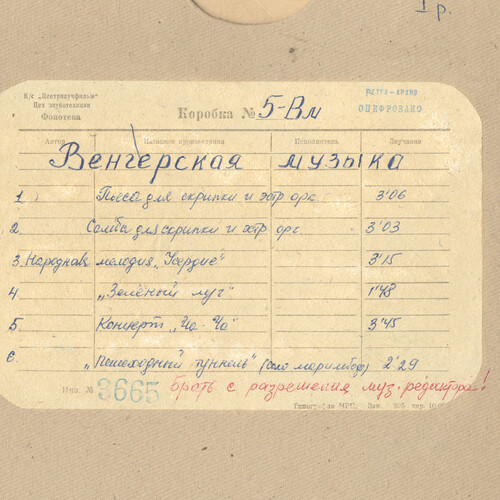 I р.
К/с „Центрнаучфильм"
Цех звукотехники
Фонотека
Коробка № 5-Вм
ОЦИФРОВАНО
Автор Название произведения Исполнитель Звучание
Венгерская музыка
1 Пьеса для скрипки и эстр орк 3'06
2 Самба для скрипки и эстр орк 3'03
3. Народная мелодия „Усердие" 3'15
4 „Зелёный луг" 1'48
5. Концерт „Ча-Ча" 3'45
6. „Пешеходный туннель" (соло маримба) 2'29
Инв. № 3665 брать с разрешения муз. редактора!
Типография МРП. Зак.